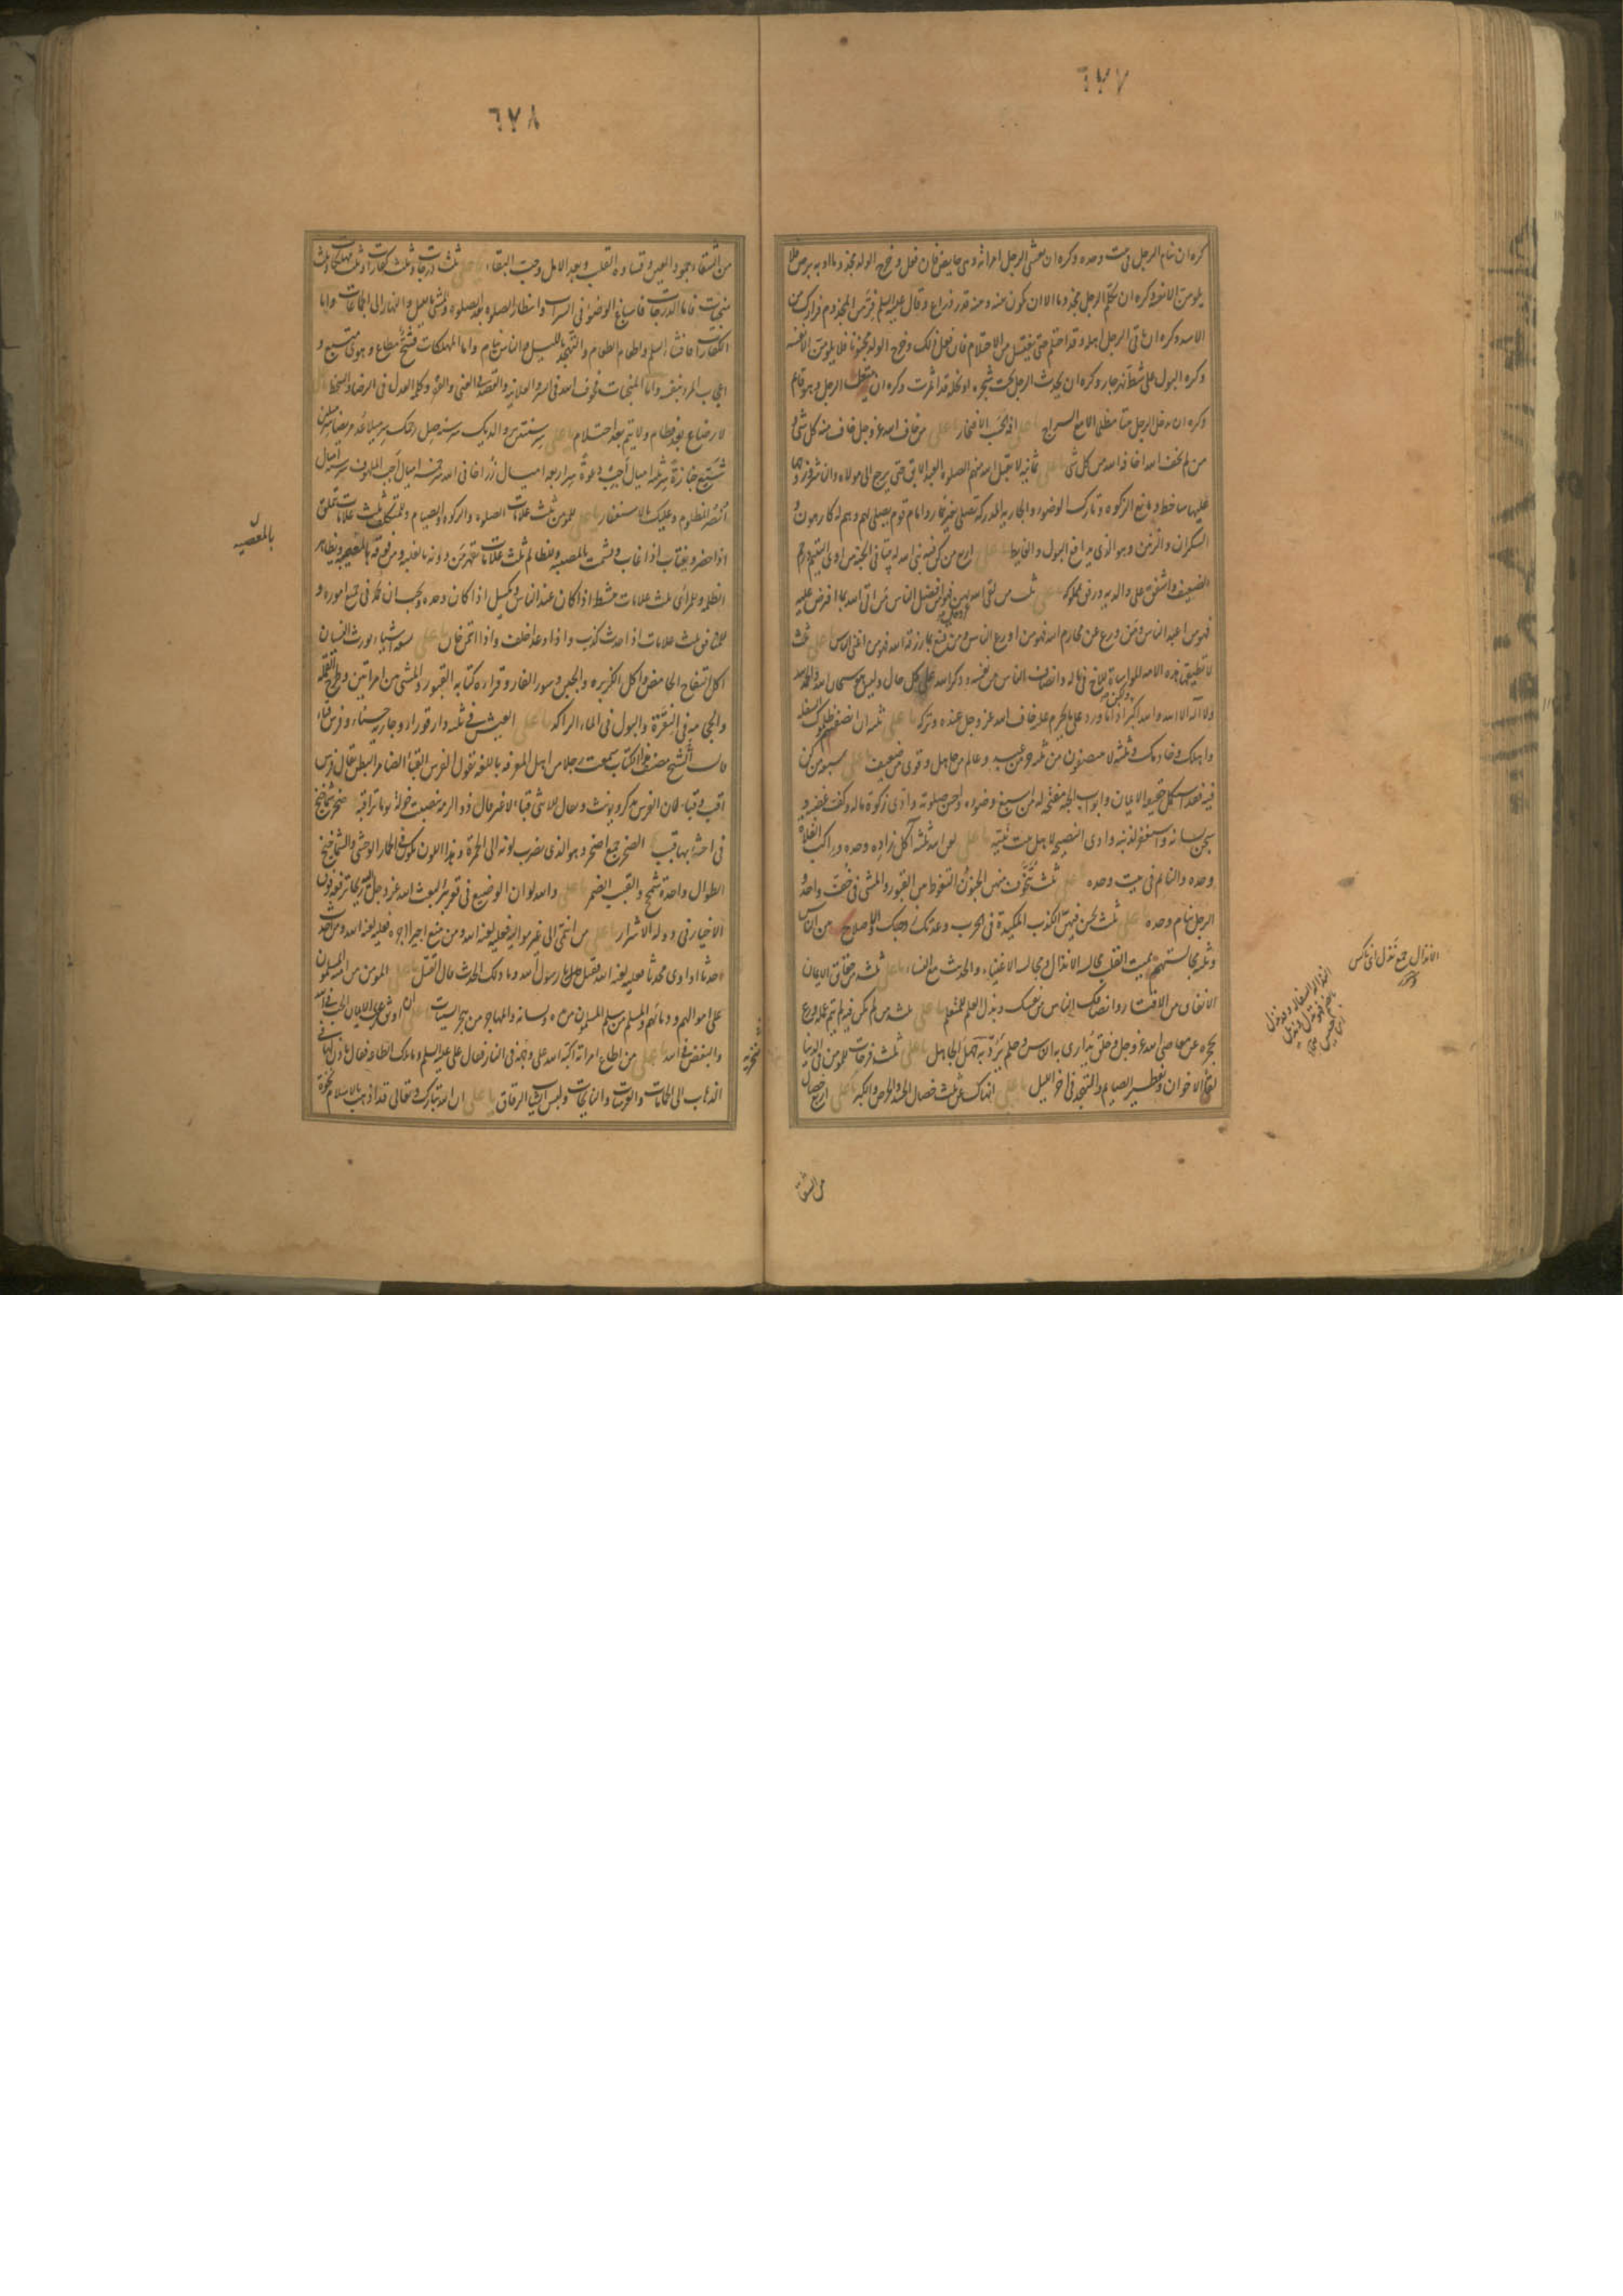 ٦٧٧
كره ان ينام الرجل فى بيت وحده وكره ان يغشى الرجل امراته وهى حايض فان فعل وخرج الولد مجذوما او به برص فلا
يلومن الا نفسه وكره ان يكلم الرجل مجذوما الا ان يكون بينه وبينه قدر ذراع وقال عليه السلم فر من المجذوم فرارك من
الاسد وكره ان ياتى الرجل اهله وقد احتلم حتى يغتسل من الاحتلام فان فعل ذلك وخرج الولد مجنونا فلا يلومن الا نفسه
وكره البول على شط نهر جار وكره ان يحدث الرجل تحت شجرة او نخلة قد اثمرت وكره ان يتنعل الرجل وهو قايم
وكره ان يدخل الرجل بيتا مظلما الا مع السراج يا على افة الحسب الافتخار يا على من خاف الله عز وجل خاف منه كل شئ و
من لم يخف الله اخافه الله من كل شئ يا على ثمانية لا يقبل الله منهم الصلوة العبد الابق حتى يرجع الى مولاه والناشز وزوجها
عليها ساخط ومانع الزكوة وتارك الوضوء والجارية المدركة تصلى بغير خمار وامام قوم يصلى بهم وهم له كارهون و
السكران والزنين وهو الذى يدافع البول والغايط يا على اربع من كن فيه بنى الله له بيتا فى الجنة من اوى اليتيم ورحم
الضعيف واشفق على والديه ورفق بمملوكه يا على ثلث من لقى الله بهن فهو من افضل الناس من اتى الله بما افترض عليه
فهو من اعبد الناس ومن ورع عن محارم الله فهو من اورع الناس ومن قنع بما رزقه الله فهو من اغنى الناس يا على ثلث
لا تطيقها هذه الامة المواساة للاخ فى ماله وانصاف الناس من نفسه وذكر الله على كل حال وليس هو سبحان الله والحمد لله
ولا اله الا الله والله اكبر ولكن اذا ورد على ما يحرم عليه خاف الله عز وجل عنده وتركه يا على ثلثة ان انصفتهم ظلموك السفلة
واهلك وخادمك وثلثة لا ينتصفون من ثلثة حر من عبد وعالم من جاهل وقوى من ضعيف يا على سبعة من كن
فيه فقد استكمل حقيقة الايمان وابواب الجنة مفتحة له من اسبغ وضوءه واحسن صلوته وادى زكوة ماله وكف غضبه و
سجن لسانه واستغفر لذنبه وادى النصيحة لاهل بيت نبيه يا على لعن الله ثلثة آكل زاده وحده وراكب الفلاة
وحده والنايم فى بيت وحده يا على ثلث يتخوف منهن الجنون التغوط بين القبور والمشى فى خف واحد و
الرجل ينام وحده يا على ثلث يحسن فيهن الكذب المكيدة فى الحرب وعدتك زوجتك والاصلاح بين الناس
وثلثة مجالستهم تميت القلب مجالسة الانذال ومجالسة الاغنياء والحديث مع النساء يا على ثلثة من حقايق الايمان
الانفاق من الاقتار وانصافك الناس من نفسك وبذل العلم للمتعلم يا على ثلثة من لم تكن فيه لم يتم عمله ورع
يحجزه عن معاصى الله عز وجل وخلق يدارى به الناس وحلم يرد به جهل الجاهل يا على ثلث فرحات للمومن فى الدنيا
لقاء الاخوان وتفطير الصيام والتهجد فى اخر الليل يا على انهاك عن ثلث خصال الحسد والحرص والكبر يا على اربع خصال
الانذال جمع نذل اى ناكس
من الشقاء
٦٧٨
من الشقاء جمود العين وقساوة القلب وبعد الامل وحب البقاء يا على ثلث درجات وثلث كفارات وثلث مهلكات وثلث
منجيات فاما الدرجات فاسباغ الوضوء فى السبرات وانتظار الصلوة بعد الصلوة والمشى بالليل والنهار الى الجماعات واما
الكفارات فافشاء السلم واطعام الطعام والتهجد بالليل والناس نيام واما المهلكات فشح مطاع وهوى متبع و
اعجاب المرء بنفسه واما المنجيات فخوف الله فى السر والعلانية والقصد فى الغنى والفقر وكلمة العدل فى الرضا والسخط يا على
لا رضاع بعد فطام ولا يتم بعد احتلام يا على سر سنتين بر والديك سر سنة صل رحمك سر ميلا عد مريضا سر ميلين
شيع جنازة سر ثلثة اميال اجب دعوة سر اربعة اميال زر اخا فى الله سر خمسة اميال اجب الملهوف سر ستة اميال
انصر المظلوم وعليك بالاستغفار يا على للمومن ثلث علامات الصلوة والزكوة والصيام وللمتكلف ثلث علامات يتملق
اذا حضر ويغتاب اذا غاب ويشمت بالمصيبة وللظالم ثلث علامات يقهر من دونه بالغلبة ومن فوقه بالمعصية ويظاهر
الظلمة وللمرائى ثلث علامات ينشط اذا كان عند الناس ويكسل اذا كان وحده ويحب ان يحمد فى جميع اموره و
للمنافق ثلث علامات اذا حدث كذب واذا وعد اخلف واذا ائتمن خان يا على تسعة اشياء يورث النسيان
اكل التفاح الحامض واكل الكزبره والجبن وسور الفار وقراءة كتابة القبور والمشى بين امراتين وطرح القملة
والحجامة فى النقرة والبول فى الماء الراكد يا على العيش فى ثلثة دار قوراء وجارية حسناء وفرس قباء
قال الشيخ مصنف هذا الكتاب سمعت رجلا من اهل المعرفة باللغة يقول الفرس القباء الضامر البطن يقال فرس
اقب وقباء لان الفرس يذكر ويونث ويقال للانثى قباء لا غير قال ذو الرمة تنصبت حوله يوما تراقبه صحر سماحيج
فى احشائها قبب الصحر جمع اصحر وهو الذى يضرب لونه الى الحمرة وهذا اللون يكون فى الحمار الوحشى والسماحيج
الطوال واحدة سمحج والقبب الضمر يا على والله لو ان الوضيع فى قعر بئر لبعث الله عز وجل اليه ريحا ترفعه فوق
الاخيار فى دولة الاشرار يا على من انتمى الى غير مواليه فعليه لعنة الله ومن منع اجيرا اجره فعليه لعنة الله ومن احدث
حدثا او اوى محدثا فعليه لعنة الله فقيل يا رسول الله وما ذلك الحدث قال القتل يا على المومن من امنه المسلمون
على اموالهم ودمائهم والمسلم من سلم المسلمون من يده ولسانه والمهاجر من هجر السيئات يا على ان اوثق عرى الايمان الحب فى الله
والبغض فى الله يا على من اطاع امراته اكبه الله على وجهه فى النار فقال على عليه السلم وما تلك الطاعة فقال ياذن لها فى
الذهاب الى الحمامات والعرسات والنايحات ولبس الثياب الرقاق يا على ان الله تبارك وتعالى قد اذهب بالاسلام نخوة
بالمعصيه